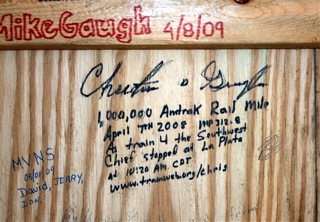 MikeGaugh 4/8/09
1,000,000 Amtrak Rail Mile
April 7TH 2008 MP 312.8
As train 4 the Southwest
Chief stopped at La Plata
at 10:20 AM. CDT
www.trainweb.org/chris
MVNS
05/01/09
David, JERRY,
DON